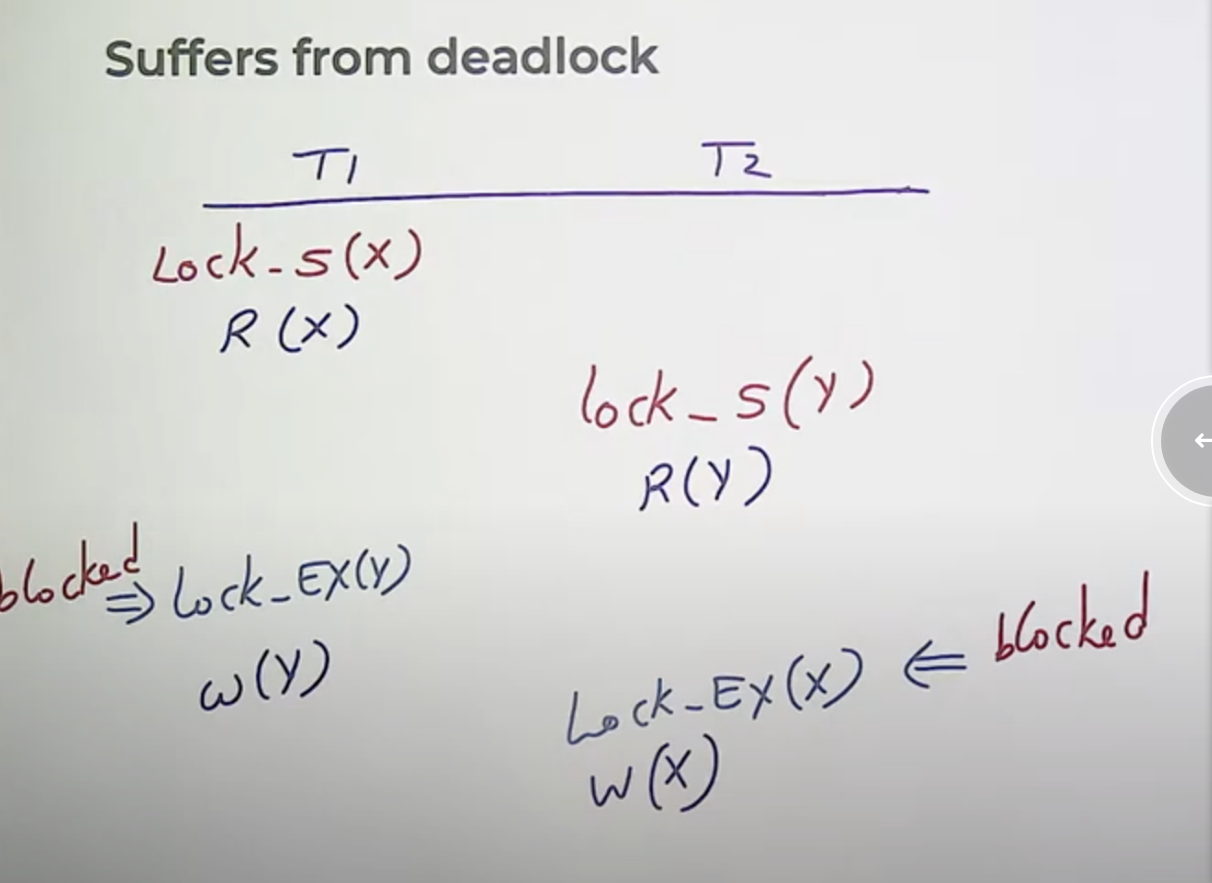 Suffers from deadlock
T1 T2
Lock-S(X)
R(X)
lock-S(Y)
R(Y)
blocked ⇒ Lock-EX(Y)
W(Y)
Lock-EX(X) ⇐ blocked
W(X)